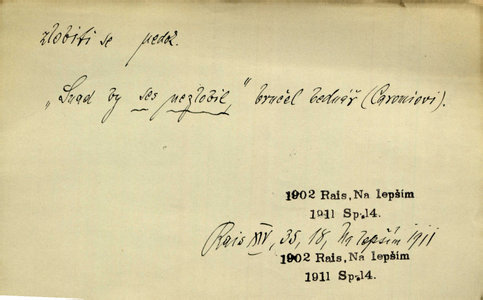 zlobiti se nedok.
„Snad by ses nezlobil," bručel bednář (Caroniovi).
1902 Rais, Na lepším
1911 Sp.14.
Rais XIV, 35, 18, Na lepším 1911
1902 Rais, Na lepším
1911 Sp.14.